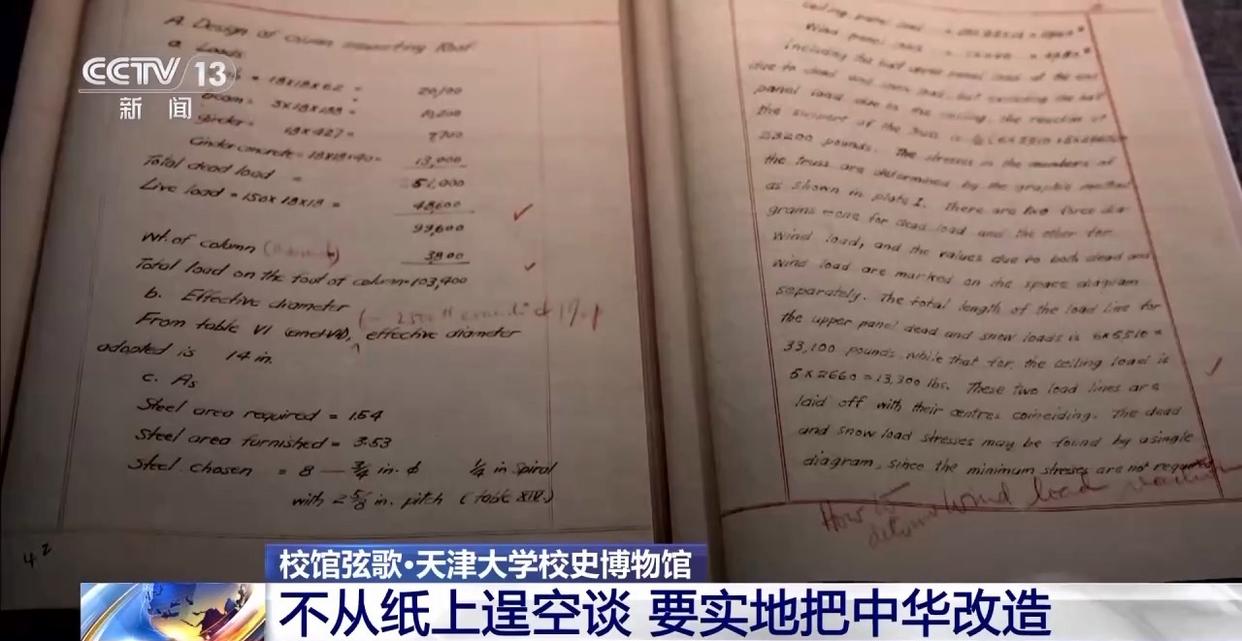 CCTV 13
新闻
A. Design of Column supporting Roof
a. Loads
= 18x18x62 = 20,100
Beam = 3x18x188 = 10,200
Girder = 18x427 = 7,700
Cinder concrete = 18x18x40 = 13,000
Total dead load = 51,000
Live load = 150x18x18 = 48,600
99,600
Wt. of column 3,800
Total load on the foot of column = 103,400
b. Effective diameter
From table VI (and VII), effective diameter
adopted is 14 in.
c. As
Steel area required = 1.54
Steel area furnished = 3.53
Steel chosen = 8 — 3/4 in. ϕ 1/4 in spiral
with 2 5/8 in. pitch (table XIV.)
42
Ceiling panel load
Wind panel load
Including the half
due to dead and snow load, but excluding the half
panel load due to the ceiling, the reaction at
the support of the truss is
23200 pounds. The stresses in the members of
the truss are determined by the graphic method
as shown in plate I. There are two force dia-
grams – one for dead load and the other for
wind load, and the values due to both dead and
wind load are marked on the space diagram
separately. The total length of the load line for
the upper panel dead and snow loads is 6x5,510 =
33,100 pounds, while that for the ceiling load is
5x2660 = 13,300 lbs. These two load lines are
laid off with their centres coinciding. The dead
and snow load stresses may be found by a single
diagram, since the minimum stresses are not
How is wind load
校馆弦歌·天津大学校史博物馆
不从纸上逞空谈 要实地把中华改造